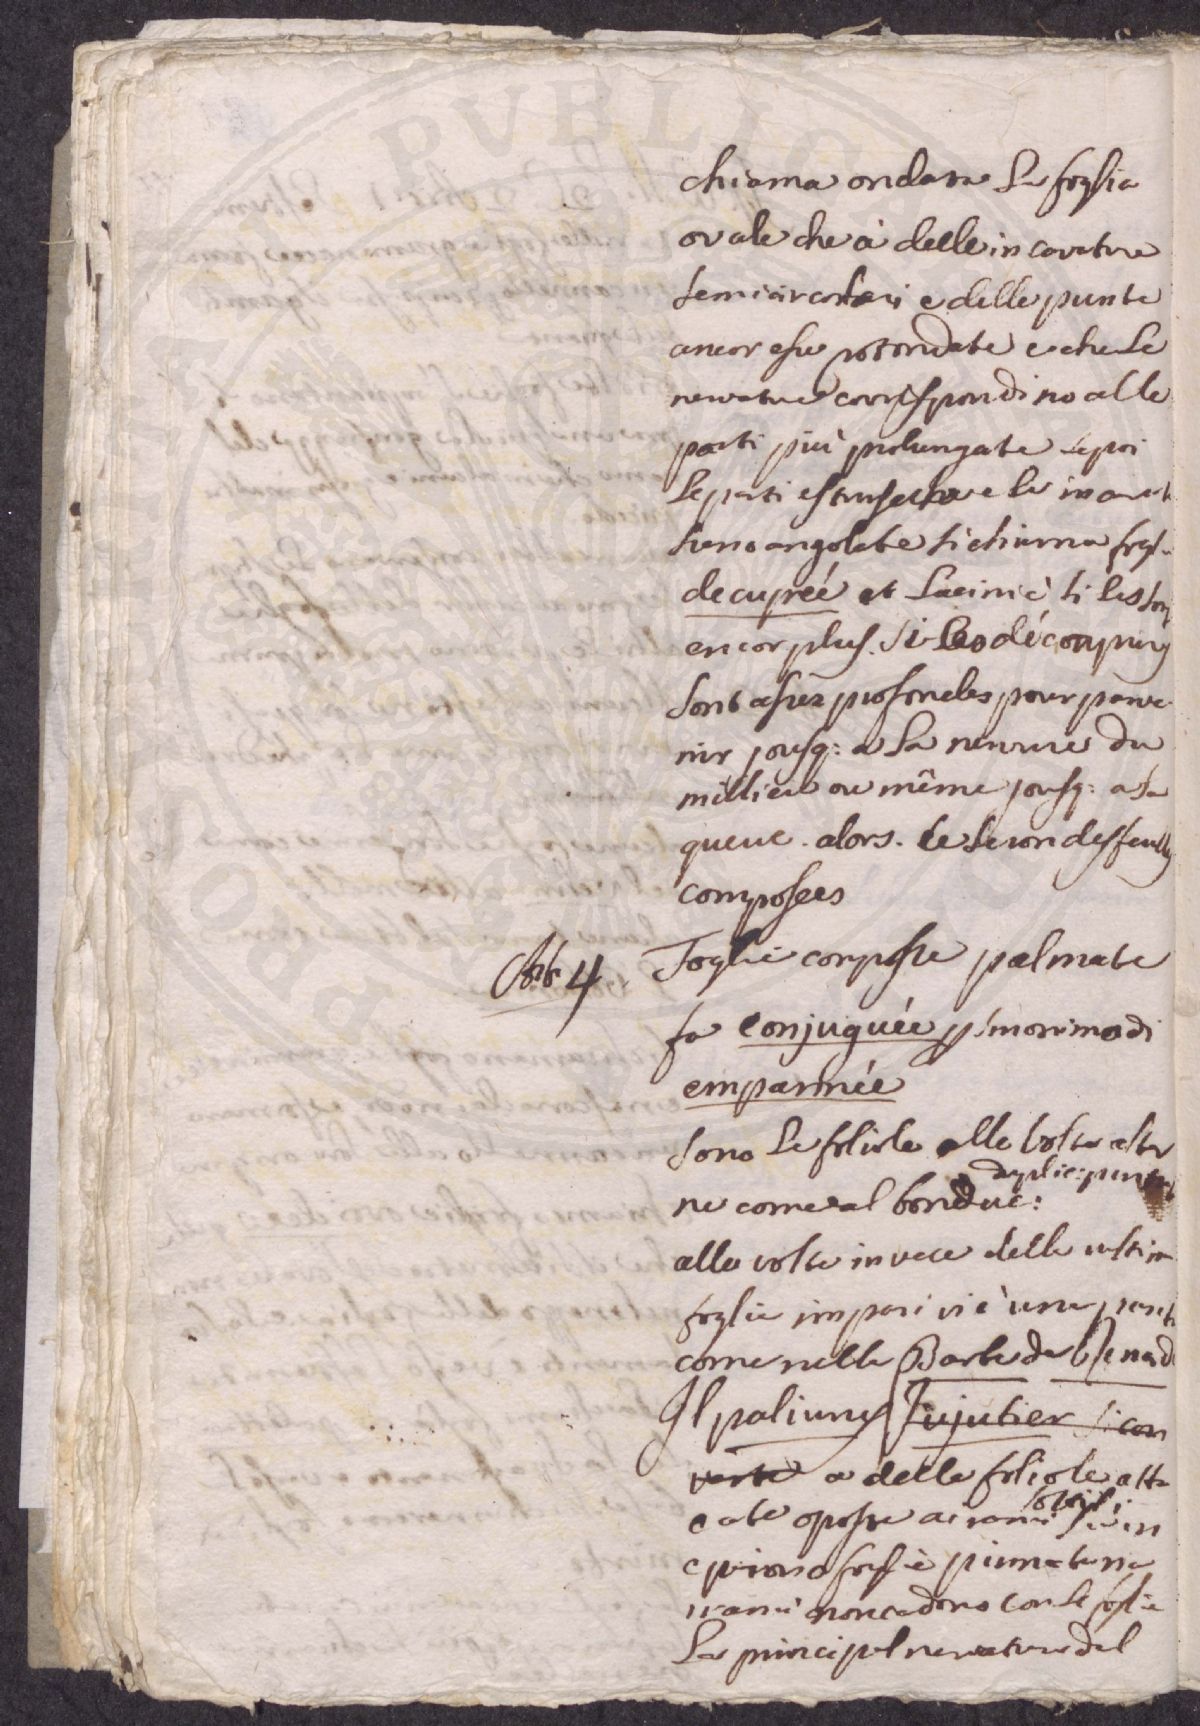 chiama ondata la foglia
ovale che à delle incavature
semicircolari e delle punte
ancor esse rotondate e che le
nervature corrispondino alle
parti più prolungate se poi
le parti e le
sieno angolate si chiama fogl
decupréé et laciniè si les
encor plus. Si les décompurs
sont assez profondes pour parve
nir jousq: a la nervure du
millieu ou même jousq: a la
queue. alors. ce seron des feuills
composees
Arb 4 Foglie composte palmate
fo conjuguée sinonimo di
empannée
sono le foliole alle volte alter
duplic: pennat
ne come al bonduc:
alle volte in vece della ultim
foglia impari vi è una punt
come nella Barbe de Renard
Il paliurus Jujubier si con
verte a delle foliole atta
sottili
cate oposte a rami si in
foglie pinnate ma
i rami non cadono con le foglie
La principal nervatura del